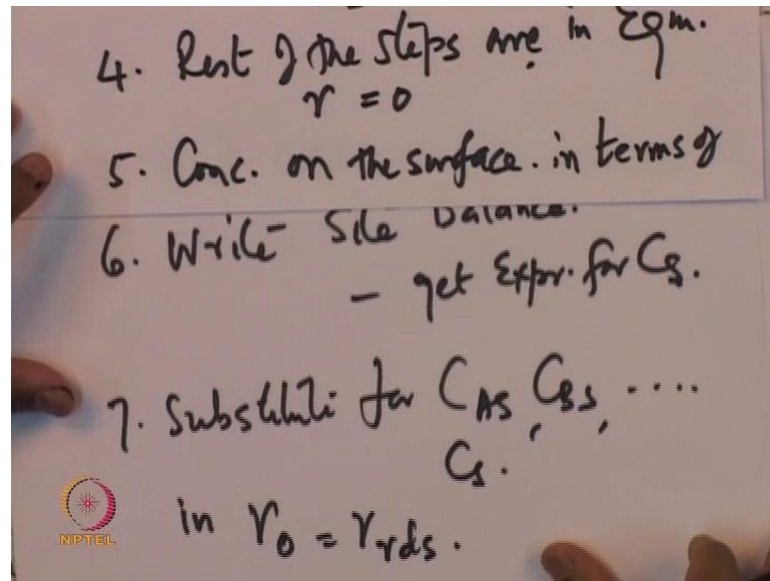 4. Rest of the steps are in Eqm.
r = 0
5. Conc. on the surface. in terms of
6. Write Site Balance.
- get Expr. for Cs.
7. Substitute for CAS CBS, ....
Cs.
in r0 = rrds.
NPTEL